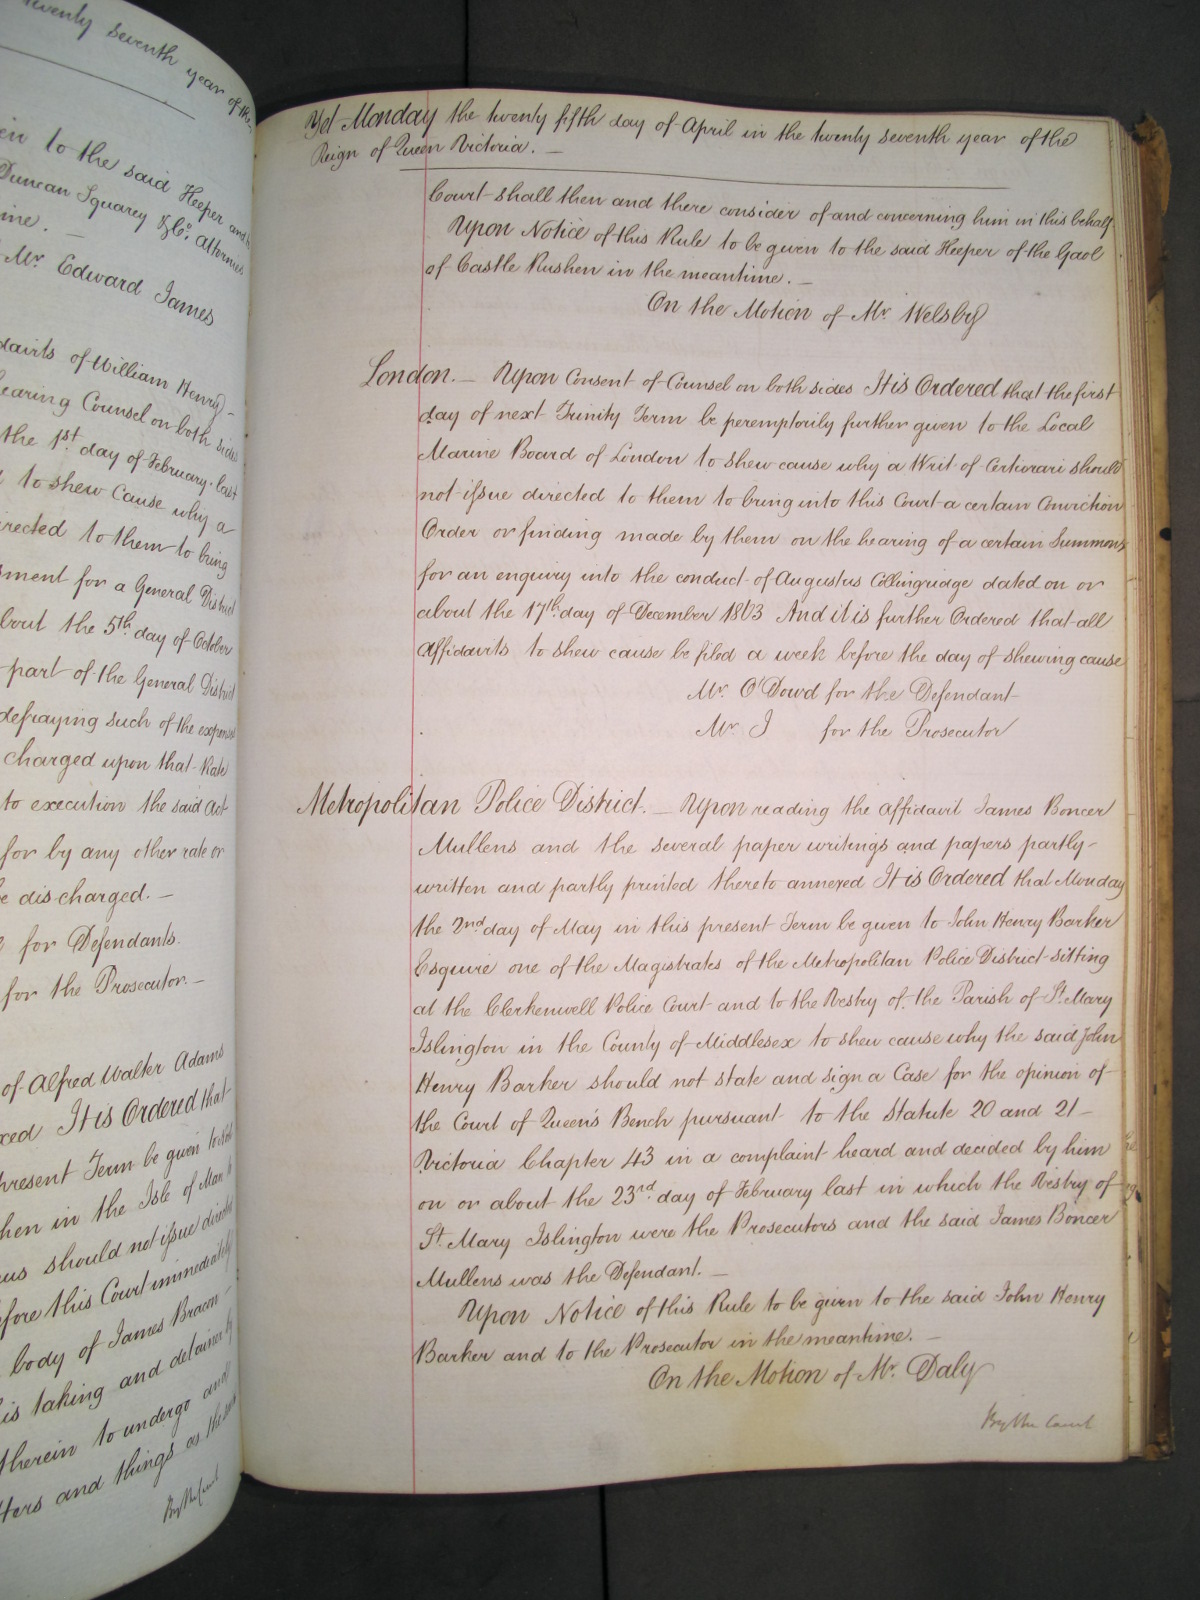 twenty seventh year of the
to the said Keeper and
Duncan Squarey & Co. Attornies
Mr. Edward James
of William Henry
hearing Counsel on both sides
the 1st day of February last
to shew Cause why a
directed to them to bring
for a General District
about the 5th day of October
part of the General District
defraying such of the expenses
charged upon that Rate
to execution the said Act
for by any other rate or
be discharged. —
for Defendants.
for the Prosecutor. —
of Alfred Walter Adams
It is Ordered that
present Term be given to
in the Isle of Man
should not issue directed
before this Court immediately
body of James Bracon
his taking and detainer by
therein to undergo and
and things as the
By the Court
Yet Monday the twenty fifth day of April in the twenty seventh year of the
Reign of Queen Victoria. —
Court shall then and there consider of and concerning him in this behalf
Upon Notice of this Rule to be given to the said Keeper of the Gaol
of Castle Rushen in the meantime. —
On the Motion of Mr. Welsby
London. — Upon Consent of Counsel on both sides It is Ordered that the first
day of next Trinity Term be peremptorily further given to the Local
Marine Board of London to shew cause why a Writ of Certiorari should
not issue directed to them to bring into this Court a certain Conviction
Order or finding made by them on the hearing of a certain Summons
for an enquiry into the conduct of Augustus Collingridge dated on or
about the 17th. day of December 1863 And it is further Ordered that all
Affidavits to shew cause be filed a week before the day of shewing cause
Mr. O'Dowd for the Defendant
Mr. J for the Prosecutor
Metropolitan Police District. — Upon reading the affidavit James Boncer
Mullens and the several paper writings and papers partly
written and partly printed thereto annexed It is Ordered that Monday
the 2nd day of May in this present Term be given to John Henry Barker
Esquire one of the Magistrates of the Metropolitan Police District sitting
at the Clerkenwell Police Court and to the Vestry of the Parish of St. Mary
Islington in the County of Middlesex to shew cause why the said John
Henry Barker should not state and sign a Case for the opinion of
the Court of Queen's Bench pursuant to the Statute 20 and 21
Victoria Chapter 43 in a complaint heard and decided by him
on or about the 23rd. day of February last in which the Vestry of
St. Mary Islington were the Prosecutors and the said James Boncer
Mullens was the Defendant. —
Upon Notice of this Rule to be given to the said John Henry
Barker and to the Prosecutor in the meantime. —
On the Motion of Mr. Daly
By the Court